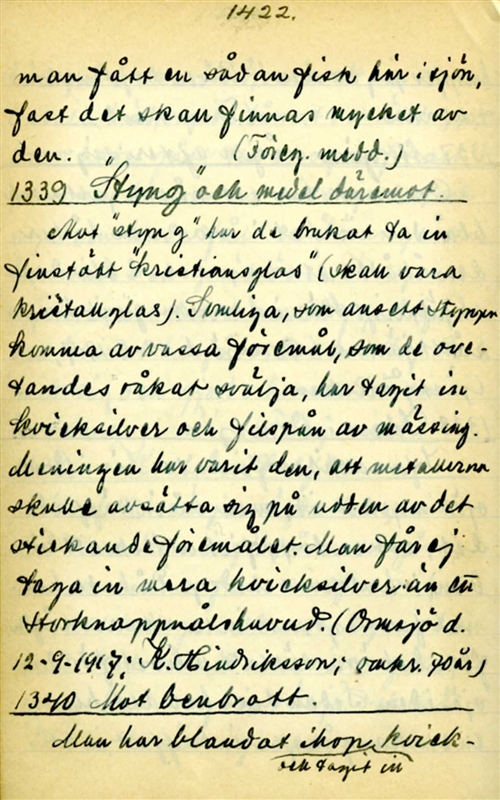 1422.
man fått en sådan fisk här i sjön,
fast det skall finnas mycket av
den. (Föreg. medd.)
1339 "Styng" och medel däremot.
Mot "styng" har de brukat ta in
finstött "kristiansglas" (skall vara
kristallglas). Somliga, som ansett styngen
komma av vassa föremål, som de ove-
tandes råkat svälja, har tagit in
kvicksilver och filspån av mässing.
Meningen har varit den, att metallerna
skulle avsätta sig på udden av det
stickande föremålet. Man får ej
taga in mera kvicksilver än ett
storknappnålshuvud. (Ormsjö d.
12-9-1917; K. Hindriksson; omkr. 70 år)
1340 Mot benbrott.
Man har blandat ihop kvick-
och tagit in